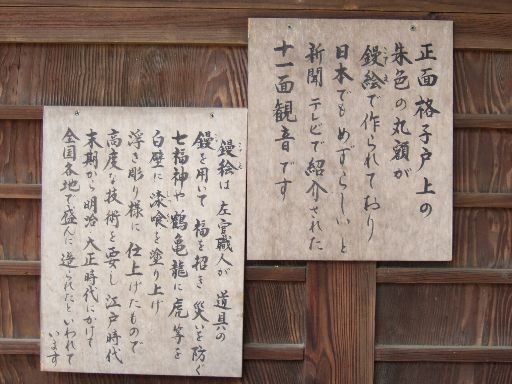 正面格子戸上の
朱色の丸額が
鏝絵で作られており
こてえ
日本でもめずらしいと
新聞テレビで紹介された
十一面観音です
鏝絵は左官職人が道具の
こてえ
鏝を用いて福を招き災いを防ぐ
七福神や鶴亀龍に虎等を
白壁に漆喰を塗り上げ
浮き彫り様に仕上げたもので
高度な技術を要し江戸時代
末期から明治大正時代にかけて
全国各地で盛んに造られたといわれて
います